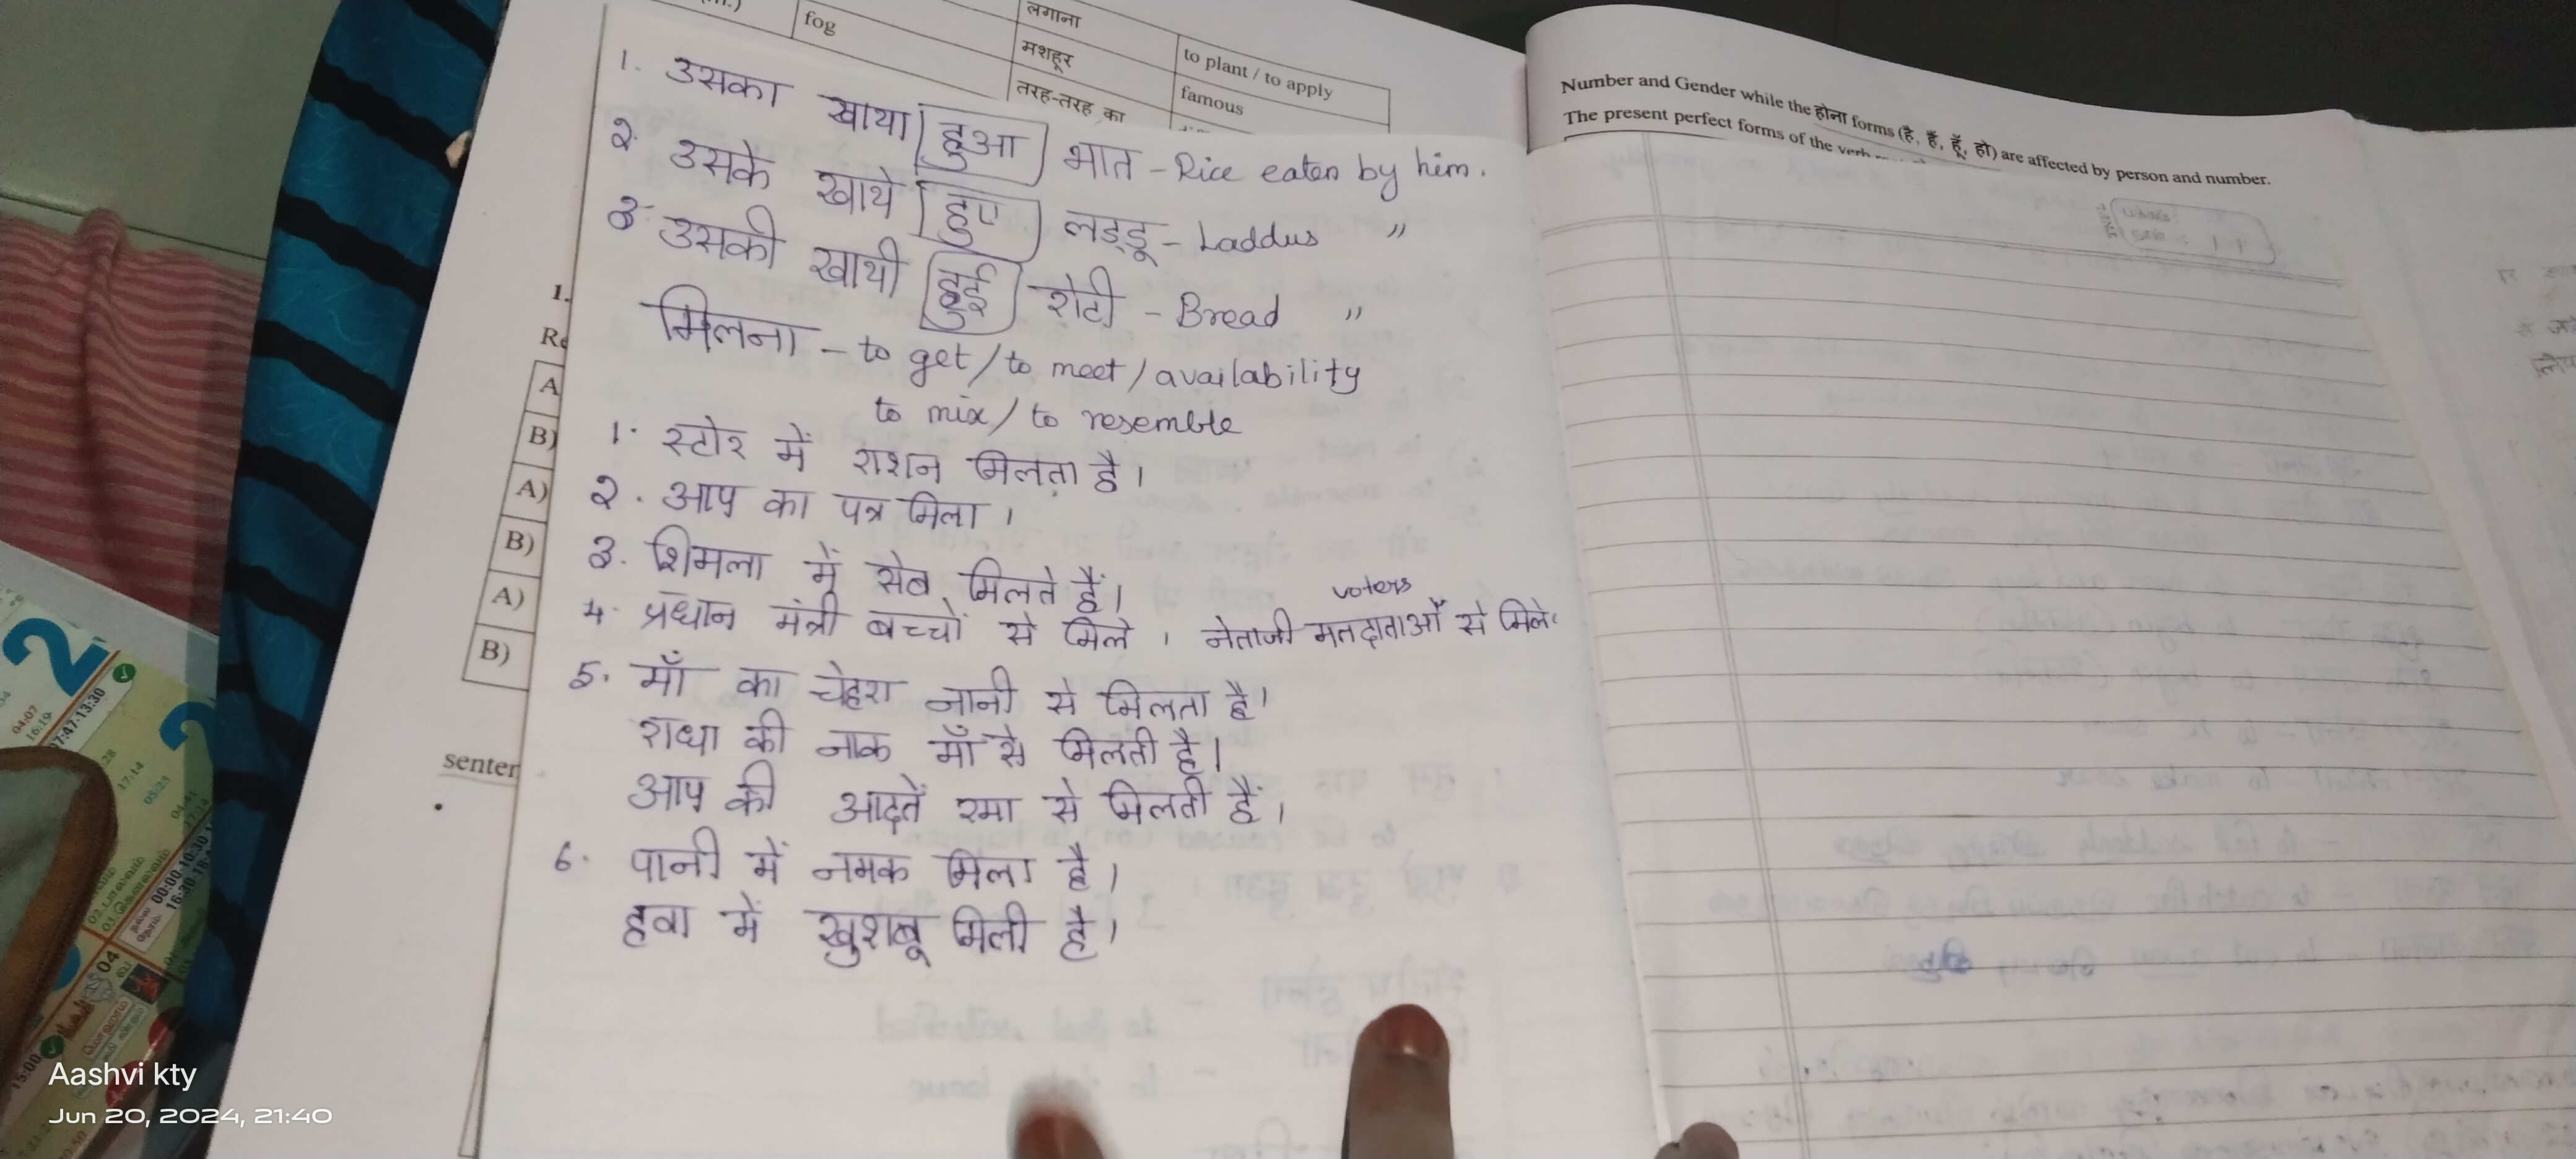 fog
लगाना
मशहूर
तरह-तरह का
to plant / to apply
famous
1. उसका खाया हुआ भात - Rice eaten by him.
२. उसके खाये हुए लड्डू - Laddus "
३. उसकी खायी हुई रोटी - Bread "
मिलना - to get / to meet / availability
to mix / to resemble
1. स्टोर में राशन मिलता है।
२. आप का पत्र मिला ।
३. शिमला में सेब मिलते हैं।
voters
4. प्रधान मंत्री बच्चों से मिले । नेताजी मतदाताओं से मिले।
5. माँ का चेहरा नानी से मिलता है।
राधा की नाक माँ से मिलती है।
आप की आदतें रमा से मिलती हैं।
6. पानी में नमक मिला है।
हवा में खुशबू मिली है।
1.
A
B)
A)
B)
A)
B)
senten
Number and Gender while the होना forms (है, हैं, हूँ, हो) are affected by person and number.
The present perfect forms of the verb
2
04-07
16:19
07:47-13:30
17:14
05:23
00:00-10:30
04
15:00
Aashvi kty
Jun 20, 2024, 21:40